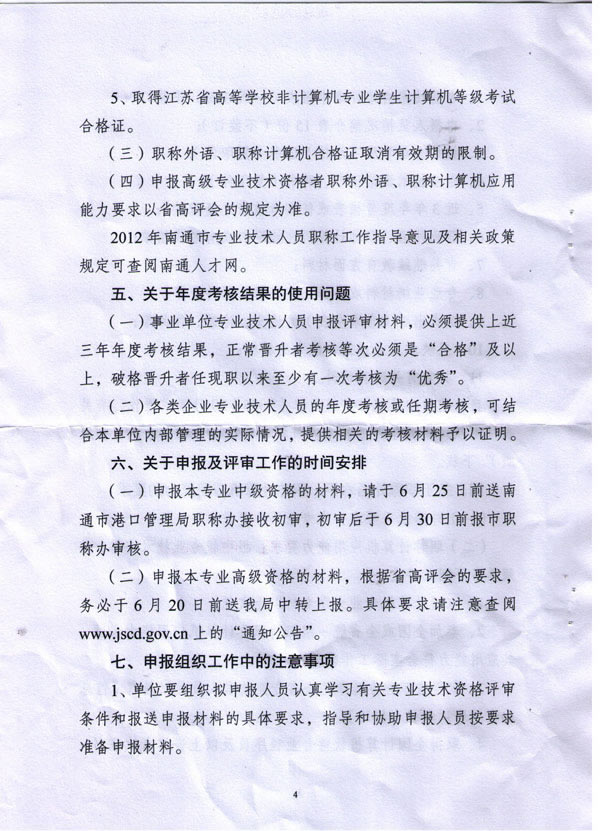 5、取得江苏省高等学校非计算机专业学生计算机等级考试
合格证。
（三）职称外语、职称计算机合格证取消有效期的限制。
（四）申报高级专业技术资格者职称外语、职称计算机应用
能力要求以省高评会的规定为准。
2012年南通市专业技术人员职称工作指导意见及相关政策
规定可查阅南通人才网。
五、关于年度考核结果的使用问题
（一）事业单位专业技术人员申报评审材料，必须提供上近
三年年度考核结果，正常晋升者考核等次必须是“合格”及以
上，破格晋升者任现职以来至少有一次考核为“优秀”。
（二）各类企业专业技术人员的年度考核或任期考核，可结
合本单位内部管理的实际情况，提供相关的考核材料予以证明。
六、关于申报及评审工作的时间安排
（一）申报本专业中级资格的材料，请于6月25日前送南
通市港口管理局职称办接收初审，初审后于6月30日前报市职
称办审核。
（二）申报本专业高级资格的材料，根据省高评会的要求，
务必于6月20日前送我局中转上报。具体要求请注意查阅
www.jscd.gov.cn上的“通知公告”。
七、申报组织工作中的注意事项
1、单位要组织拟申报人员认真学习有关专业技术资格评审
条件和报送申报材料的具体要求，指导和协助申报人员按要求
准备申报材料。
4